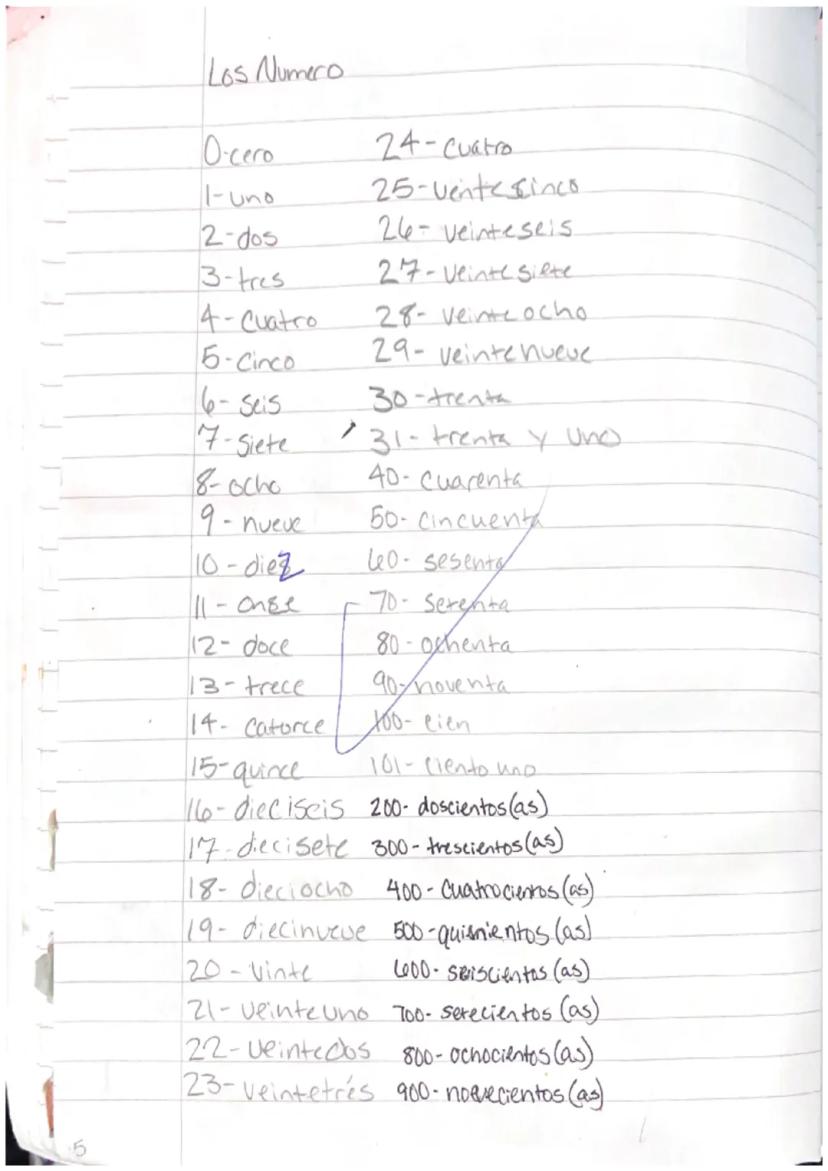 Los Numero
0-cero 24-cuatro
1-uno 25-ventecinco
2-dos 26-veinteseis
3-tres 27-veintesiete
4-cuatro 28-veinteocho
5-cinco 29-veintenueve
6-seis 30-trenta
7-siete 31-trenta y uno
8-ocho 40-cuarenta
9-nueve 50-cincuenta
10-diez 60-sesenta
11-onse 70-setenta
12-doce 80-ochenta
13-trece 90-noventa
14-catorce 100-cien
15-quince 101-ciento uno
16-dieciseis 200-doscientos(as)
17-diecisete 300-trescientos(as)
18-dieciocho 400-cuatrocientos(as)
19-diecinueve 500-quisnientos(as)
20-vinte 600-seiscientos(as)
21-veinteuno 700-setecientos(as)
22-veintedos 800-ochocientos(as)
23-veintetrés 900-novecientos(as)
5